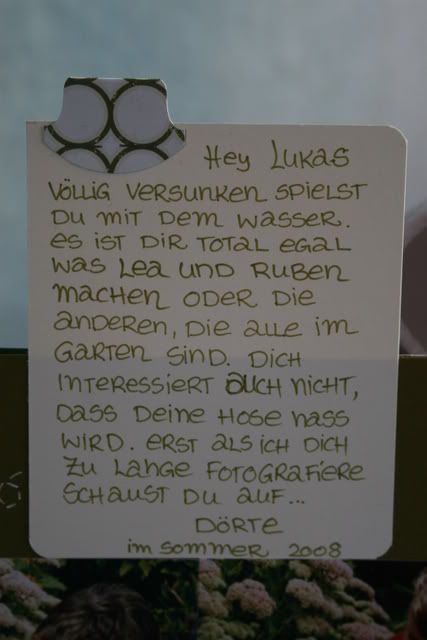 Hey Lukas
völlig versunken spielst
du mit dem Wasser.
es ist dir total egal
was Lea und Ruben
machen oder die
anderen, die alle im
Garten sind. Dich
interessiert auch nicht,
dass deine Hose nass
wird. erst als ich dich
zu lange fotografiere
schaust du auf...
Dörte
im Sommer 2008